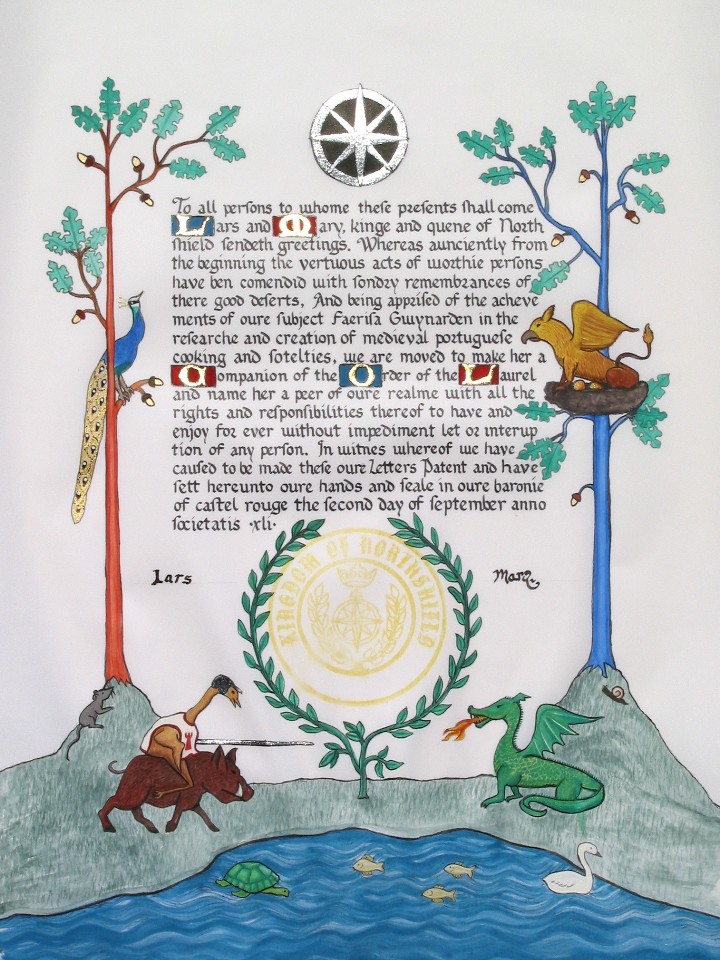 To all persons to whome these presents shall come
Lars and Mary, kinge and quene of North
shield sendeth greetings. Whereas aunciently from
the beginning the vertuous acts of worthie persons
have ben comendid with sondry remembrances of
there good deserts, And being apprised of the acheve
ments of oure subject Faerisa Gwynarden in the
researche and creation of medieval portuguese
cooking and sotelties, we are moved to make her a
Companion of the Order of the Laurel
and name her a peer of oure realme with all the
rights and responsibilities thereof to have and
enjoy for ever without impediment let or interup
tion of any person. In witnes whereof we have
caused to be made these oure Letters Patent and have
sett hereunto oure hands and seale in oure baronie
of castel rouge the second day of september anno
societatis ·xli·
Lars
Mary
KINGDOM OF NORTHSHIELD